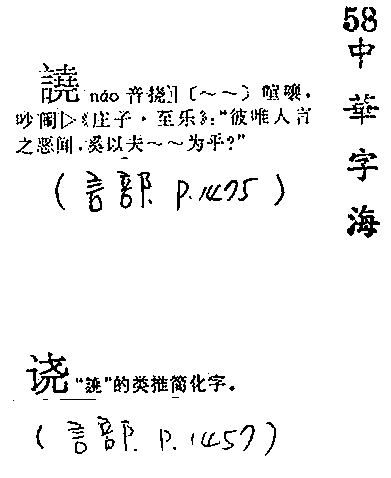 58
中華字海
譊 náo 音挠〔～～〕喧嚷，
吵闹▷《庄子·至乐》：“彼唯人言
之恶闻，奚以夫～～为乎？”
(言部 P.1475)
𫍢 “譊”的类推简化字。
(言部. P.1457)